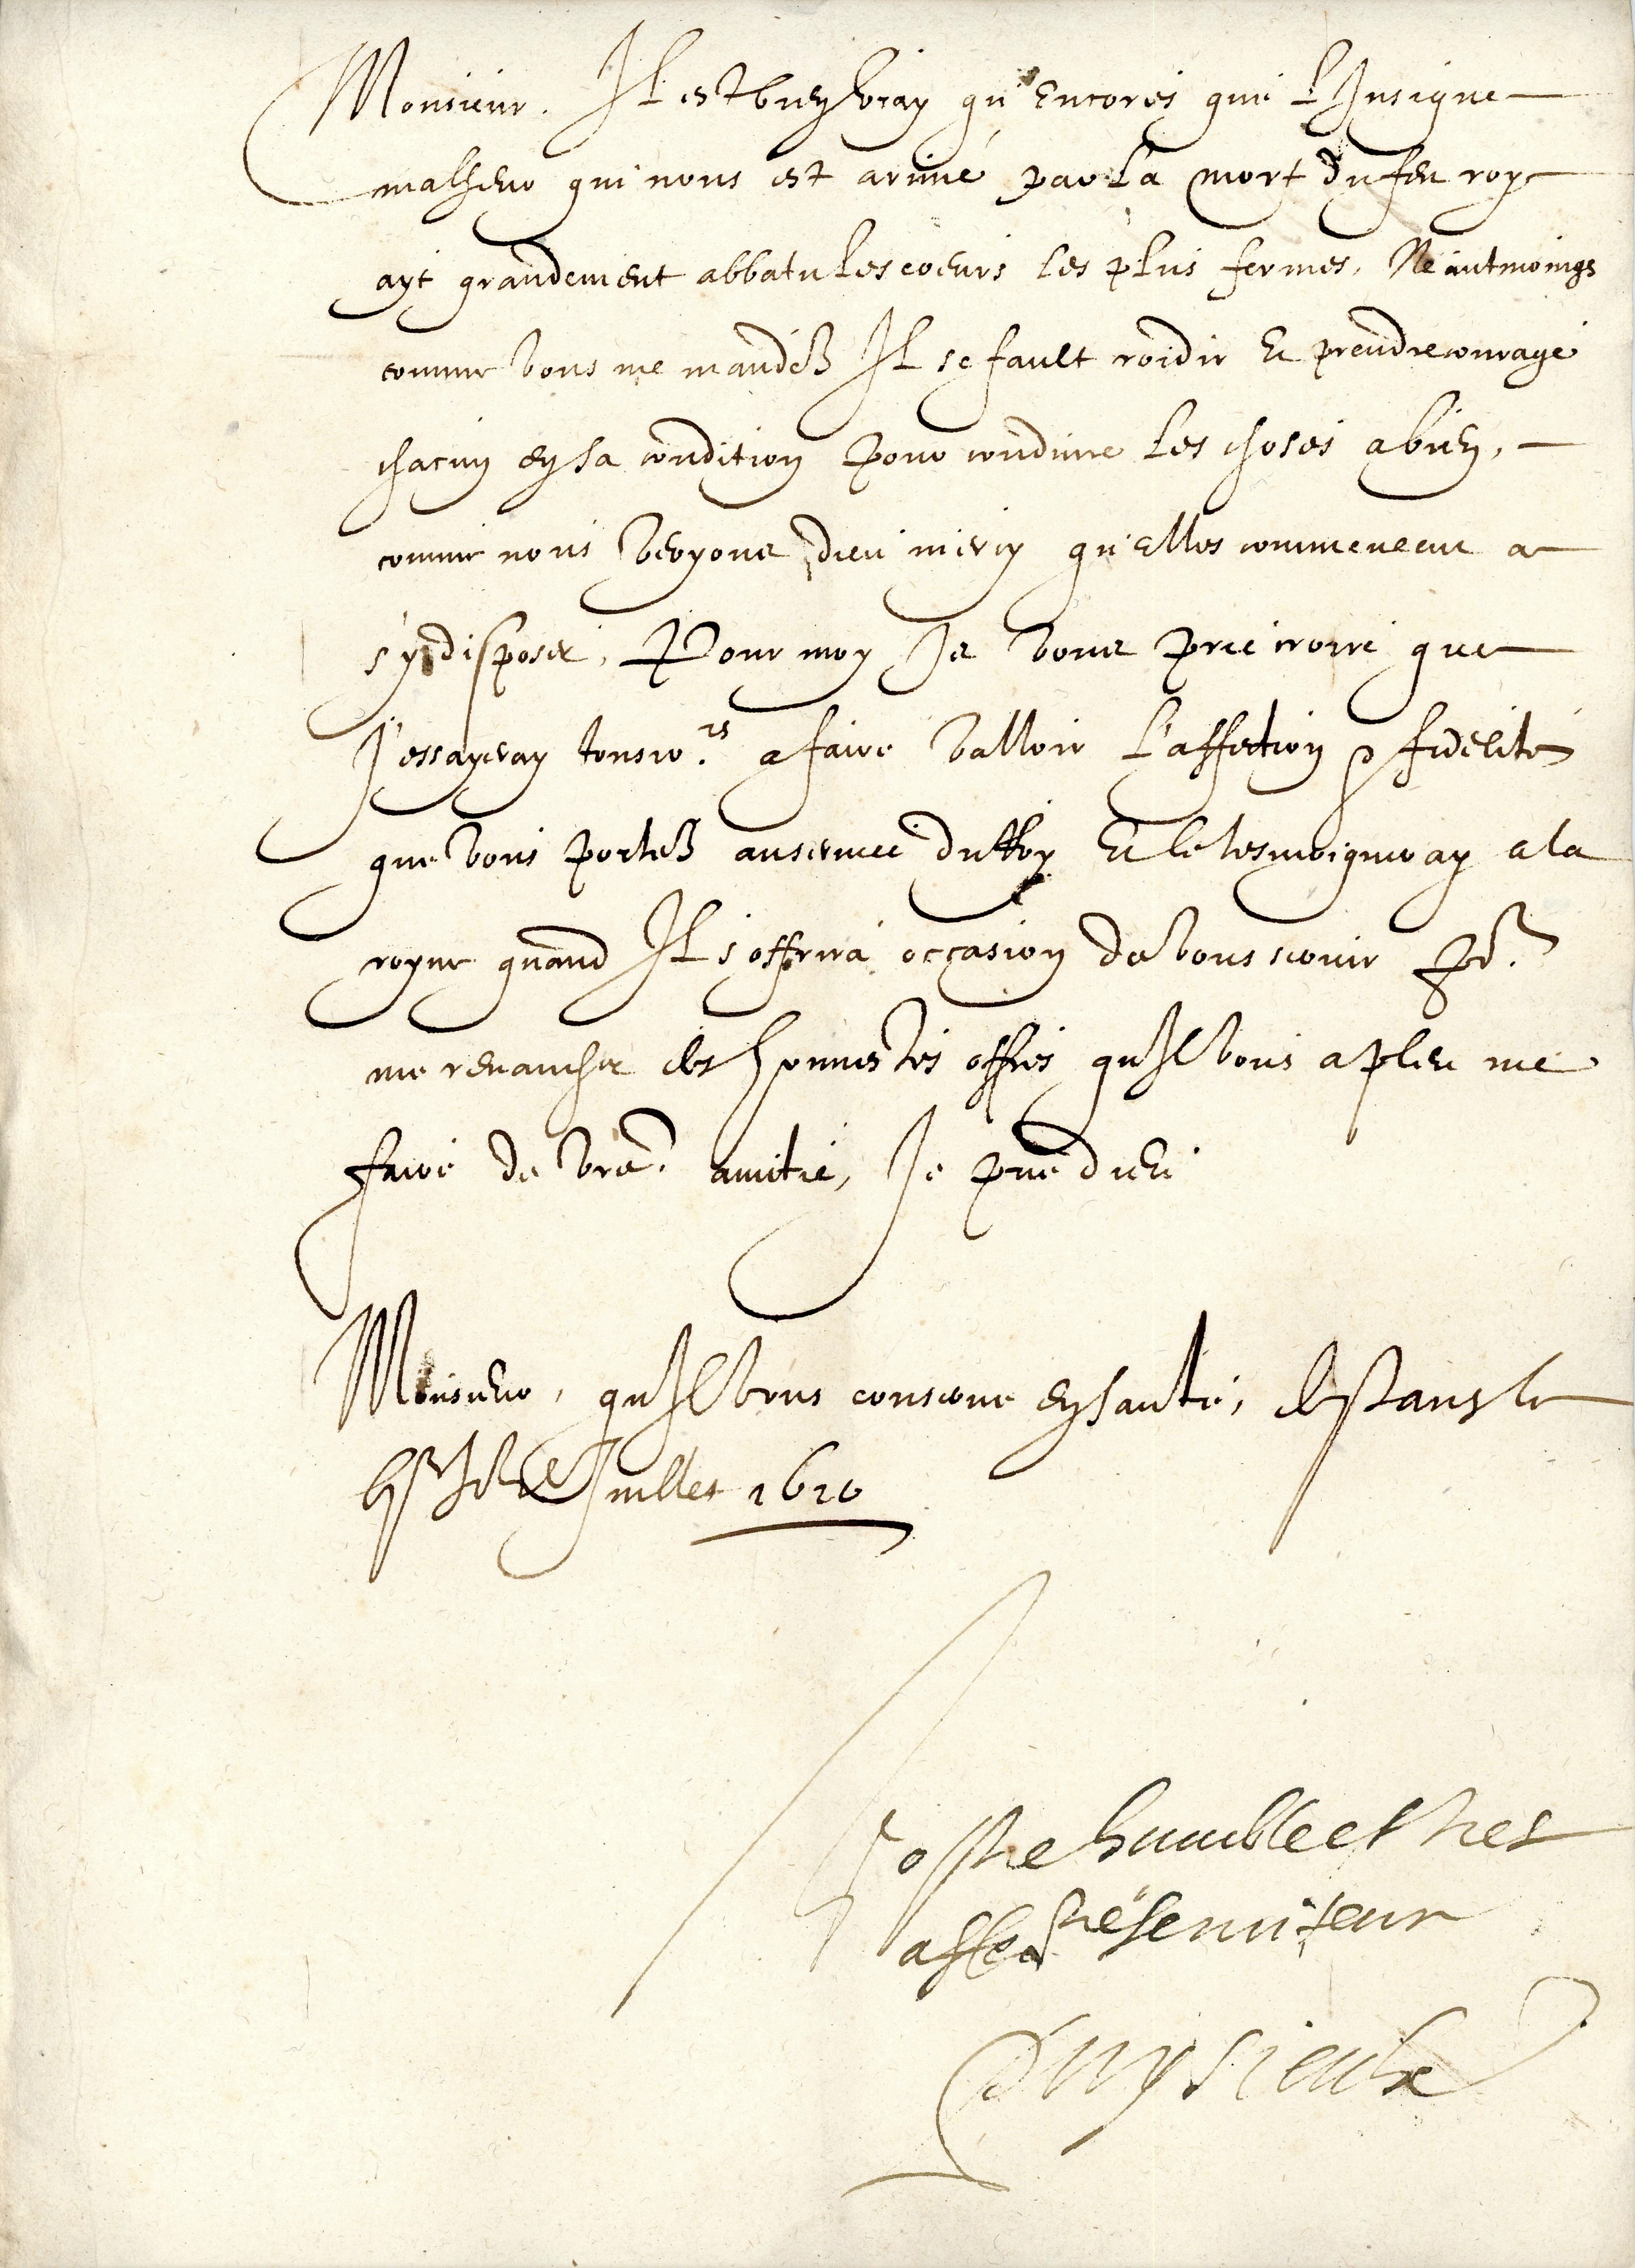 Monsieur. Il est bien vray qu'encores que l'Insigne
malheur qui nous est arrivé par la mort du feu roy
ayt grandement abbatu les coeurs les plus fermes, Neantmoings
comme vous me mandez Il se fault roidir et prendre courage
chacun en sa condition pour conduire les choses a bien,
comme nous veoyons dieu mercy qu'elles commencent a
s'y disposer, Pour moy Je vous prie croire que
J'essayeray tousjo.rs a faire valloir l'affection & fidelité
que vous portez au service du Roy et le tesmoigneray a la
royne quand Il s'offrira occasion de vous servir Pour
me revancher des honnestes offres qu'Il vous a pleu me
faire de vre. amitié, Je prie dieu
Monsieur, qu'Il vous conserve en santé, de Paris le
Juillet 1610
Vostre humble et tres
aff.né serviteur
Puysieulx